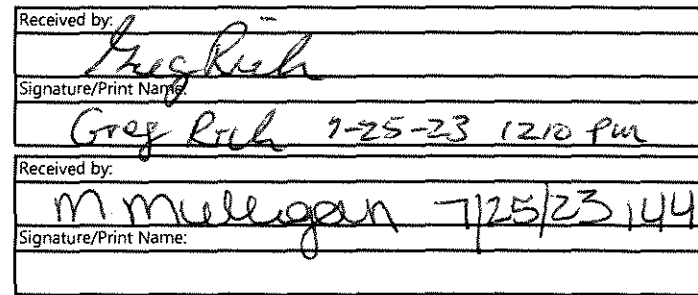 Received by:
Greg Rich
Signature/Print Name:
Greg Rich 7-25-23 1210 pm
Received by:
M Mulligan 7/25/23 144
Signature/Print Name: